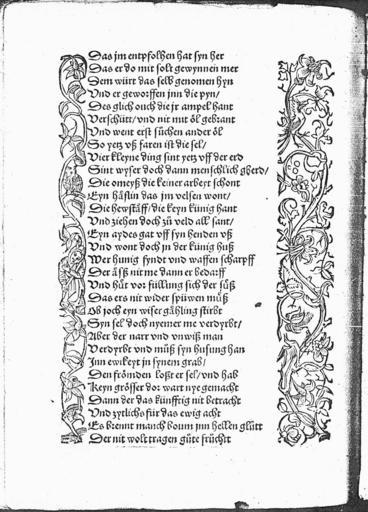 Das jm entpfolhen hat syn her
Das er do mit solt gewynnen mer
Dem würt das selb genomen hyn
Vnd er geworffen jnn die pyn/
Des glich ouch die jr ampel hant
Verschütt/vnd nit mit öl gebrant
Vnd went erst süchen ander öl
So yetz vß faren ist die sel/
Vier kleyne ding sint yetz vff der erd
Sint wyser doch dann menschlich gberd/
Die omeyß die keiner arbeyt schont
Eyn häßlin das jm velsen wont/
Die hewstäff/die keyn künig hant
Vnd ziehen doch zů veld all sant/
Eyn aydes gat vff syn henden vß
Vnd wont doch jn der künig huß
Wer hunig fyndt vnd waffen scharpff
Der äß nit me dann er bedarff
Vnd hůt vor füllung sich der süß
Das ers nit wider spüwen můß
Ob joch eyn wiser gähling stirbt
Syn sel doch nyemer me verdyrbt/
Aber der narr vnd vnwiß man
Verdyrbt vnd můß syn husung han
Jnn ewikeyt jn synem grab/
Den frömden loßt er sel/vnd hab
Keyn grösser dor wart nye gemacht
Dann der das künfftig nit betracht
Vnd zytlichs für das ewig acht
Es brennt manch boum jnn hellen glütt
Der nit wolt tragen gůte frücht